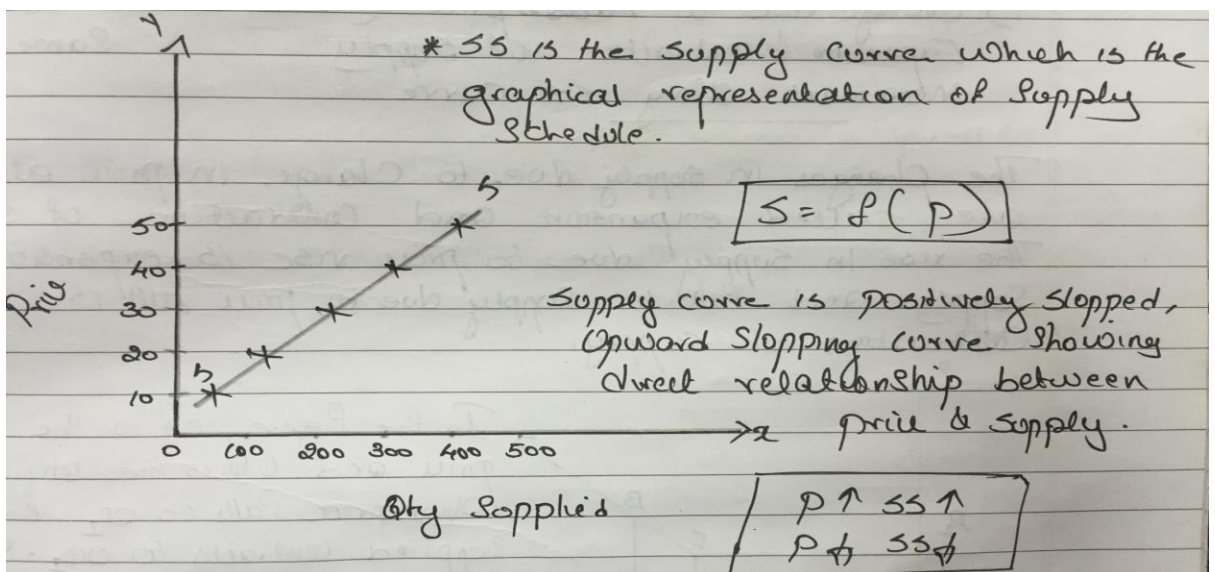 Y
* SS is the Supply Curve Which is the
graphical representation of Supply
Schedule.
S
S = f(P)
50
40
30
20
10
Price
S
Supply curve is positively slopped,
Upward Slopping curve Showing
direct relationship between
price & supply.
0 100 200 300 400 500
x
Qty Supplied
P↑ SS↑
P↓ SS↓